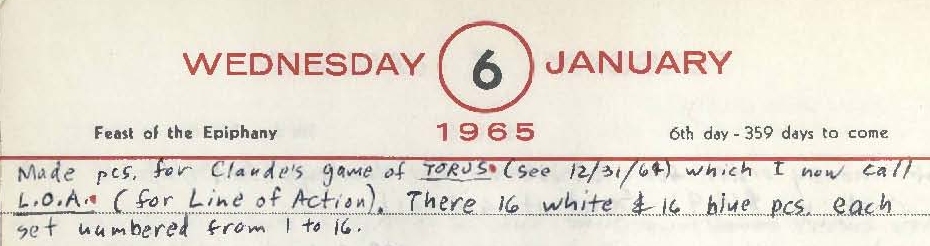 WEDNESDAY 6 JANUARY
Feast of the Epiphany 1965 6th day - 359 days to come
Made pcs. for Claude's game of TORUS (see 12/31/64) which I now call
L.O.A. (for Line of Action). There 16 white & 16 blue pcs. each
set numbered from 1 to 16.